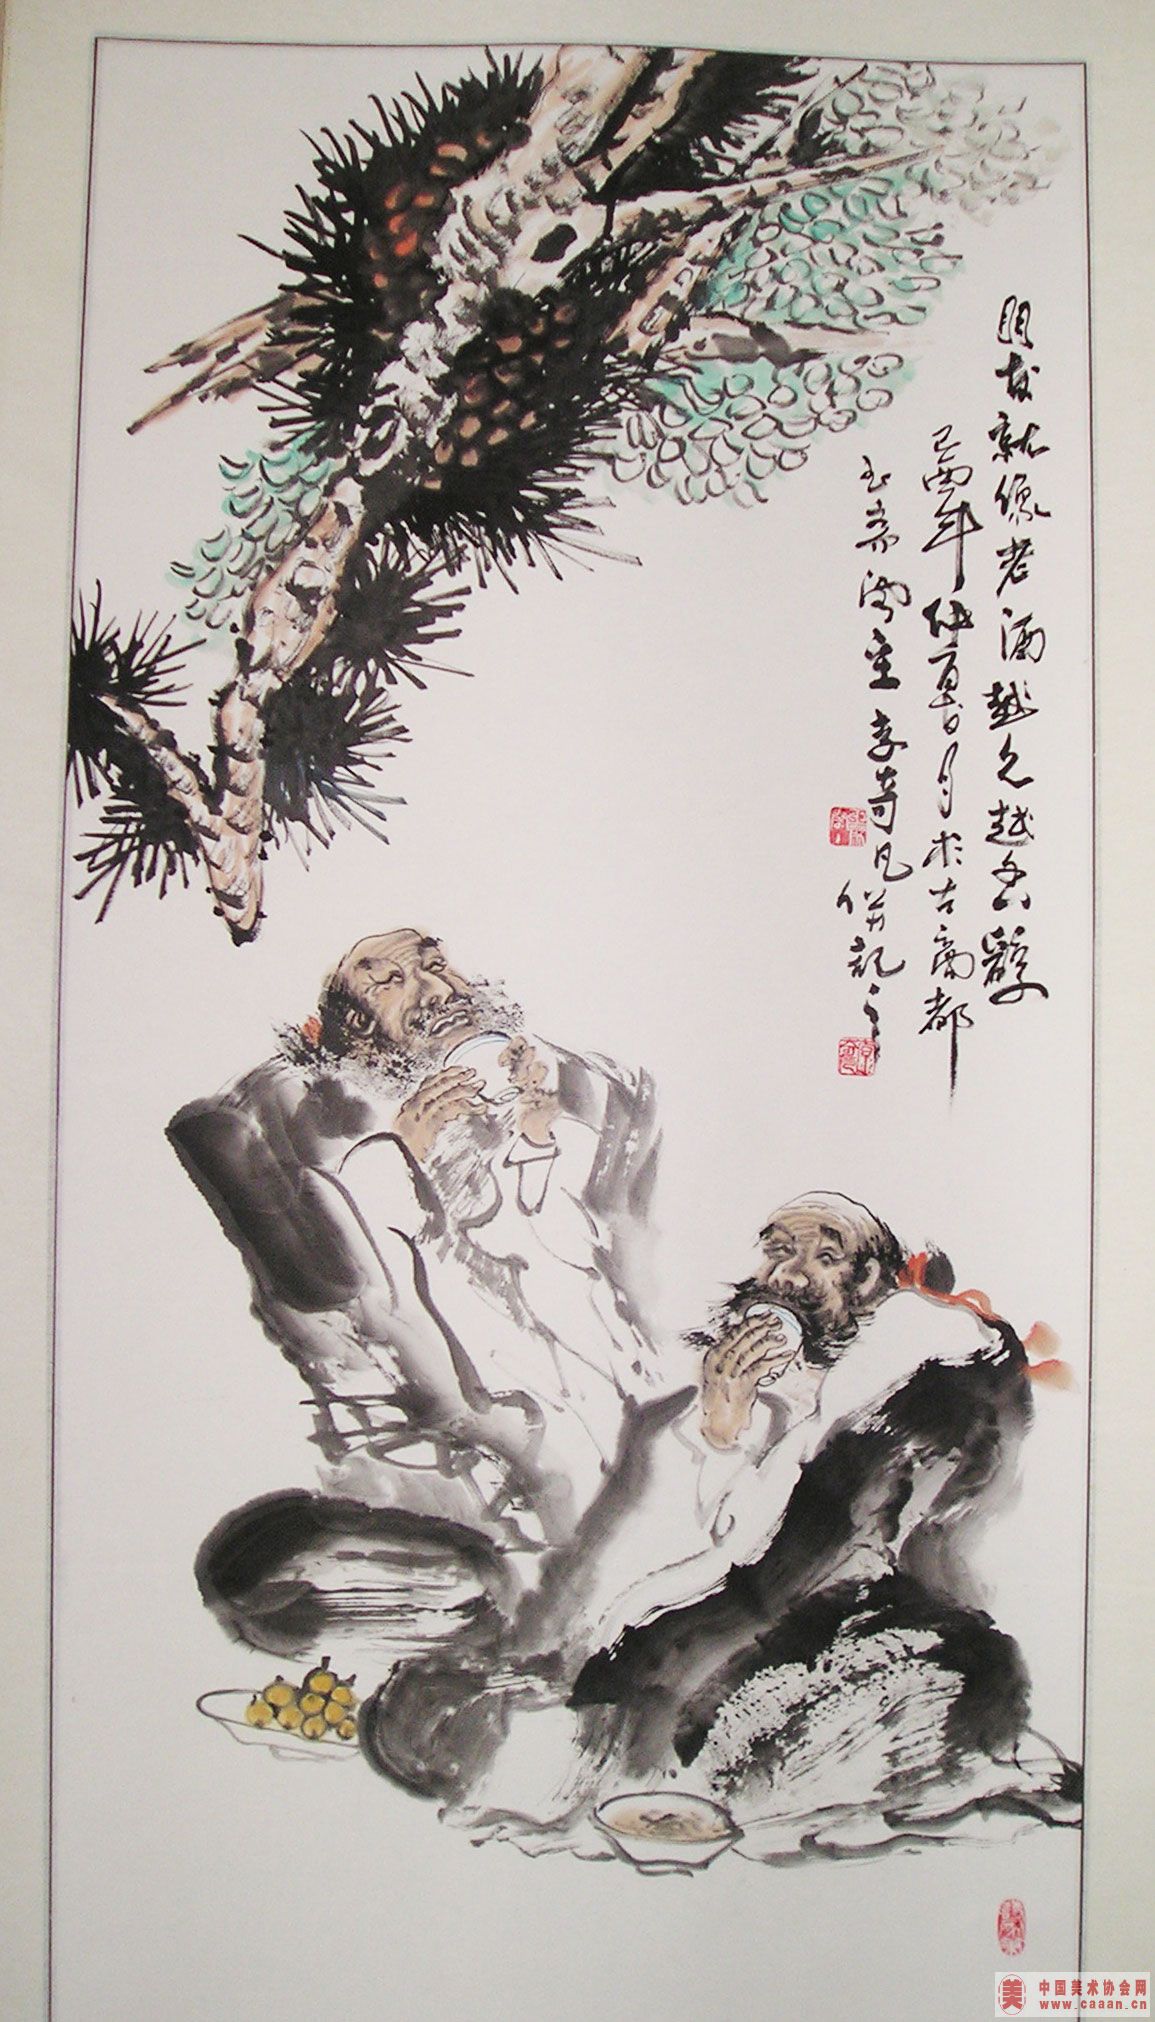 朋友就像老酒越久越香醇
乙酉年仲夏月於古商都
斋主李奇凡併記之
中国美术协会网
www.caaan.cn